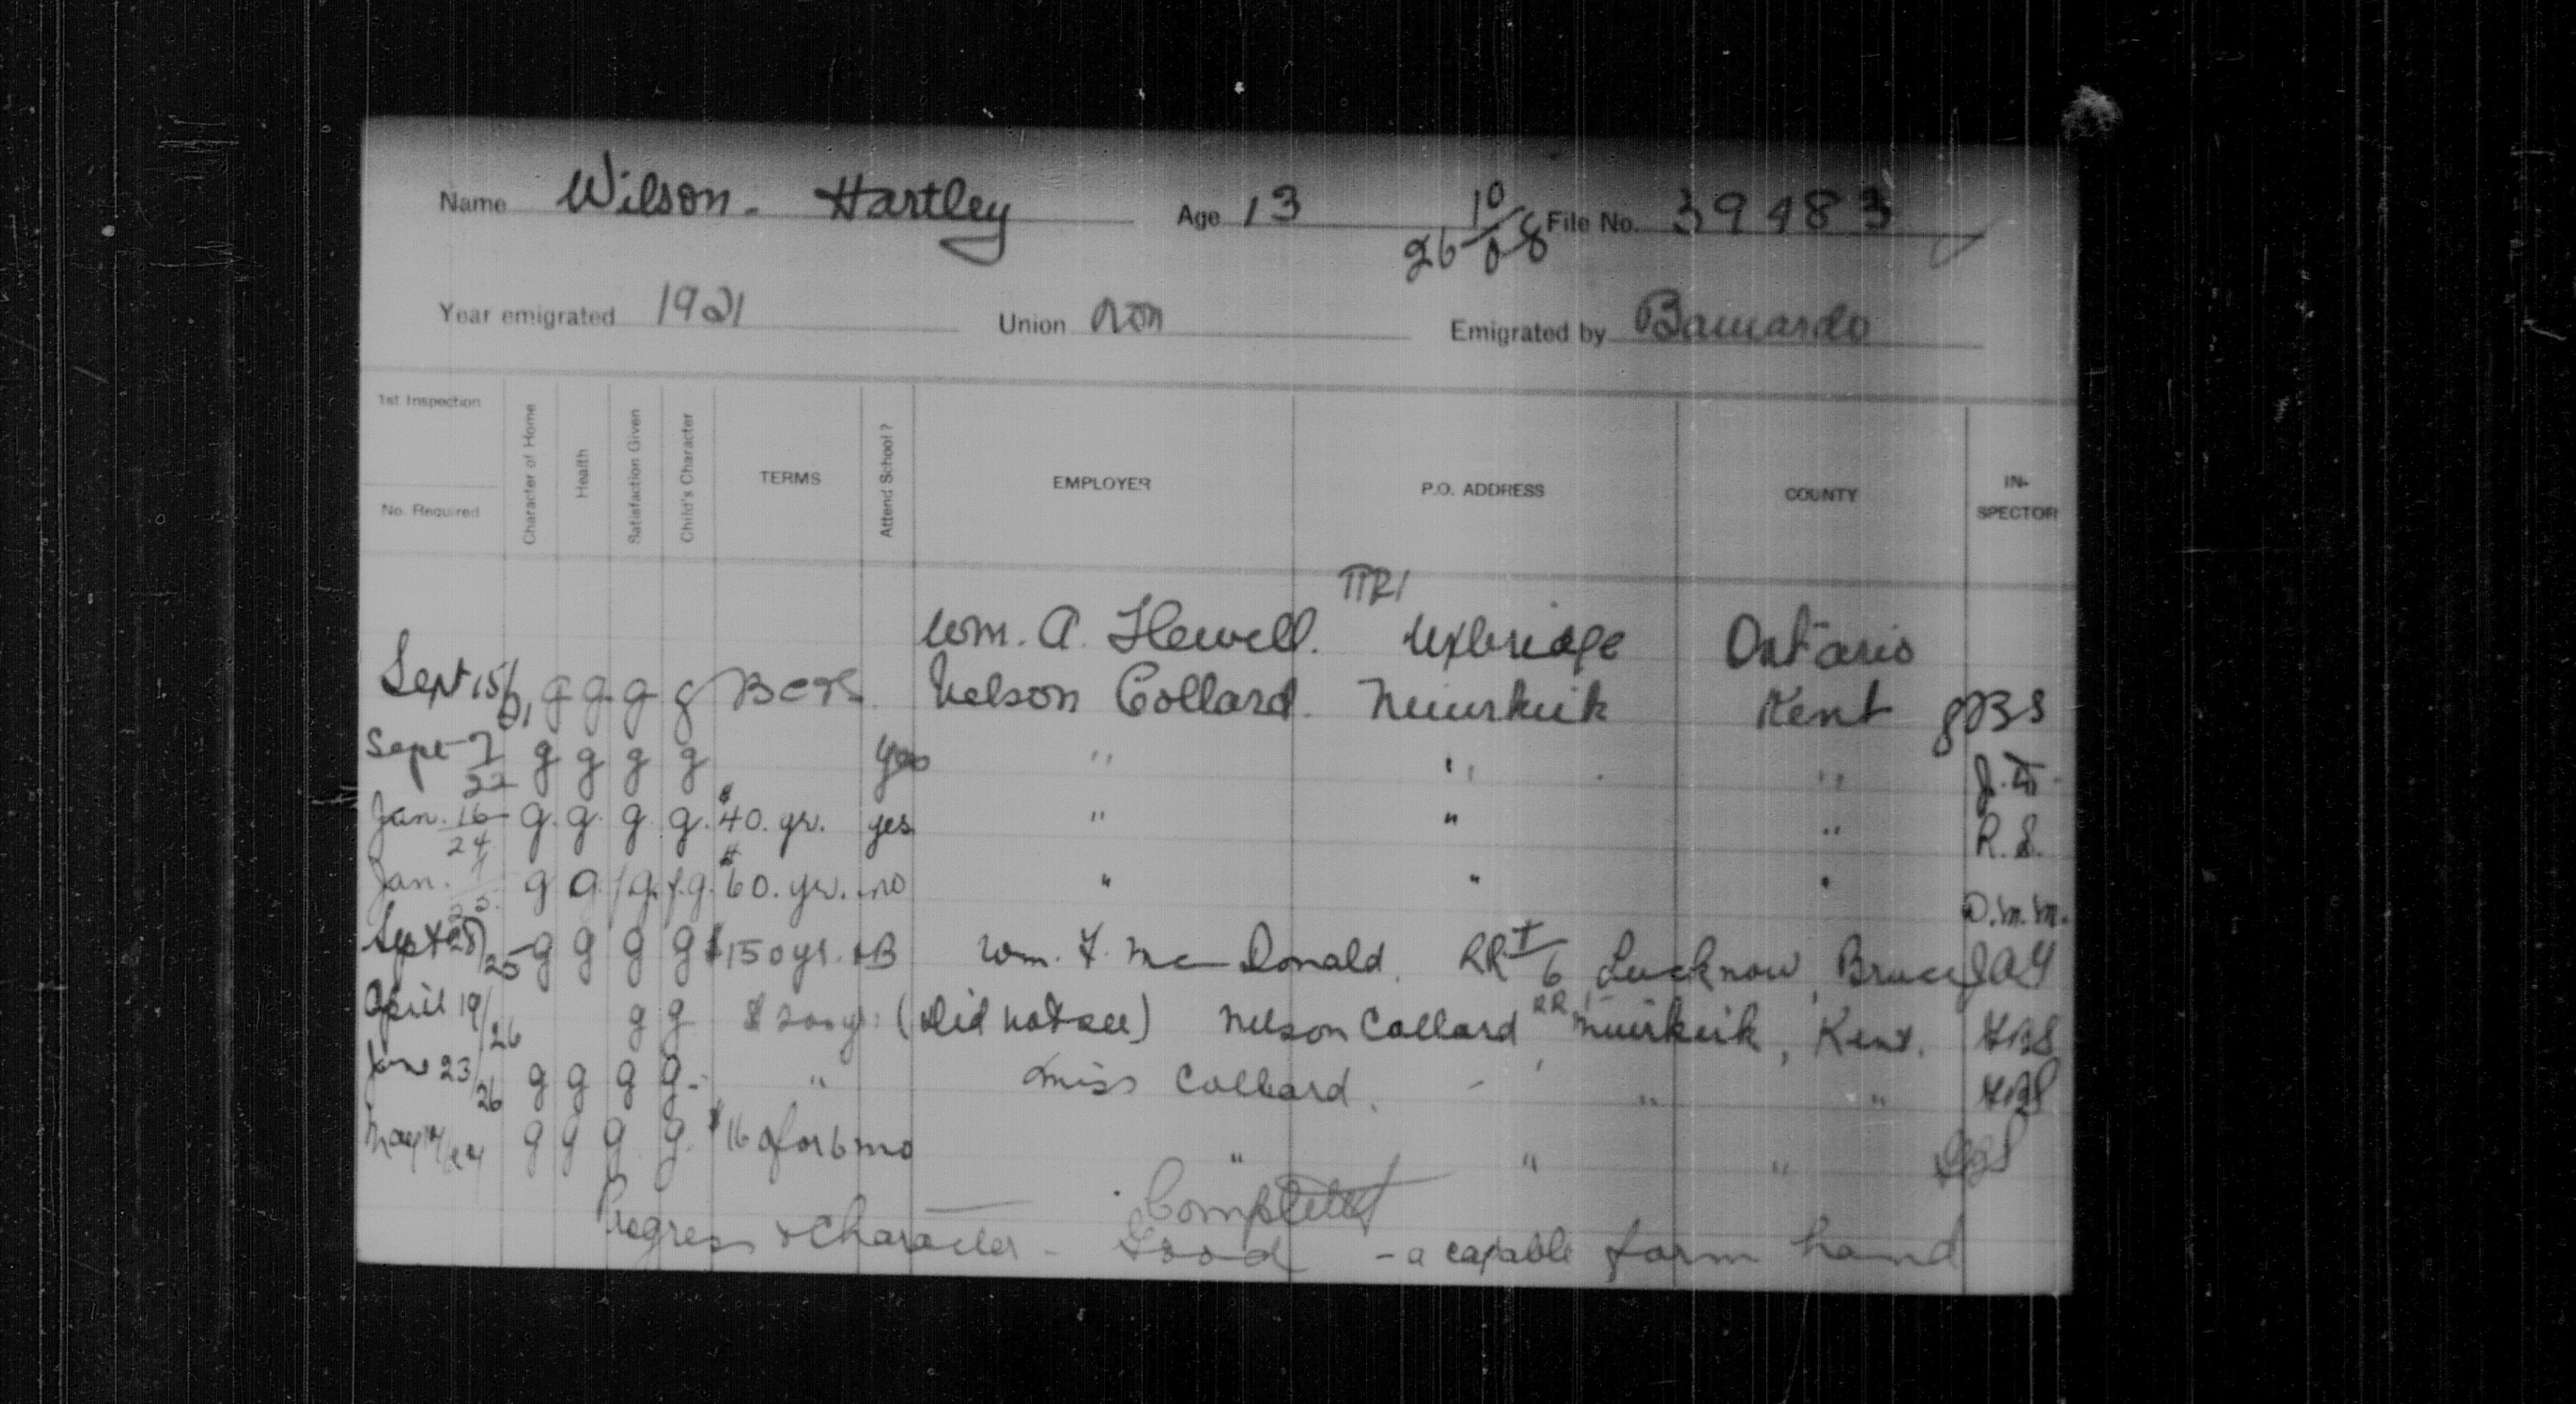 Name Wilson. Hartley Age 13 26 10/08 File No. 39483
Year emigrated 1921 Union non Emigrated by Barnardo
1st Inspection
No. Required
Character of Home Health Satisfaction Given Child's Character TERMS Attend School? EMPLOYER P.O. ADDRESS COUNTY IN-SPECTOR
RR1
Wm. A. Flewell. Uxbridge Ontario
Sept 15/21 g g g g Nelson Collard. Muirkirk Kent GBS
Sept 7/22 g g g g yes " " "
Jan. 16/24 g. g. g. g. $40. yr. yes " " " R. S.
Jan. g g. f.g. f.g. $60. yr. no " " " D.M.M.
Sept 28/25 g g g g $150 yr. + B Wm. F. McDonald. RR 6 Lucknow, Bruce
April 19/26 g g $200 yr. (Did not see) Nelson Collard, RR 1 Muirkirk, Kent. GBS
June 23/26 g g g g. " Miss Collard. " " GBS
May g g g. g. $160 for 6 mo " " " GBS
Completed
Progress & Character - Good - a capable farm hand